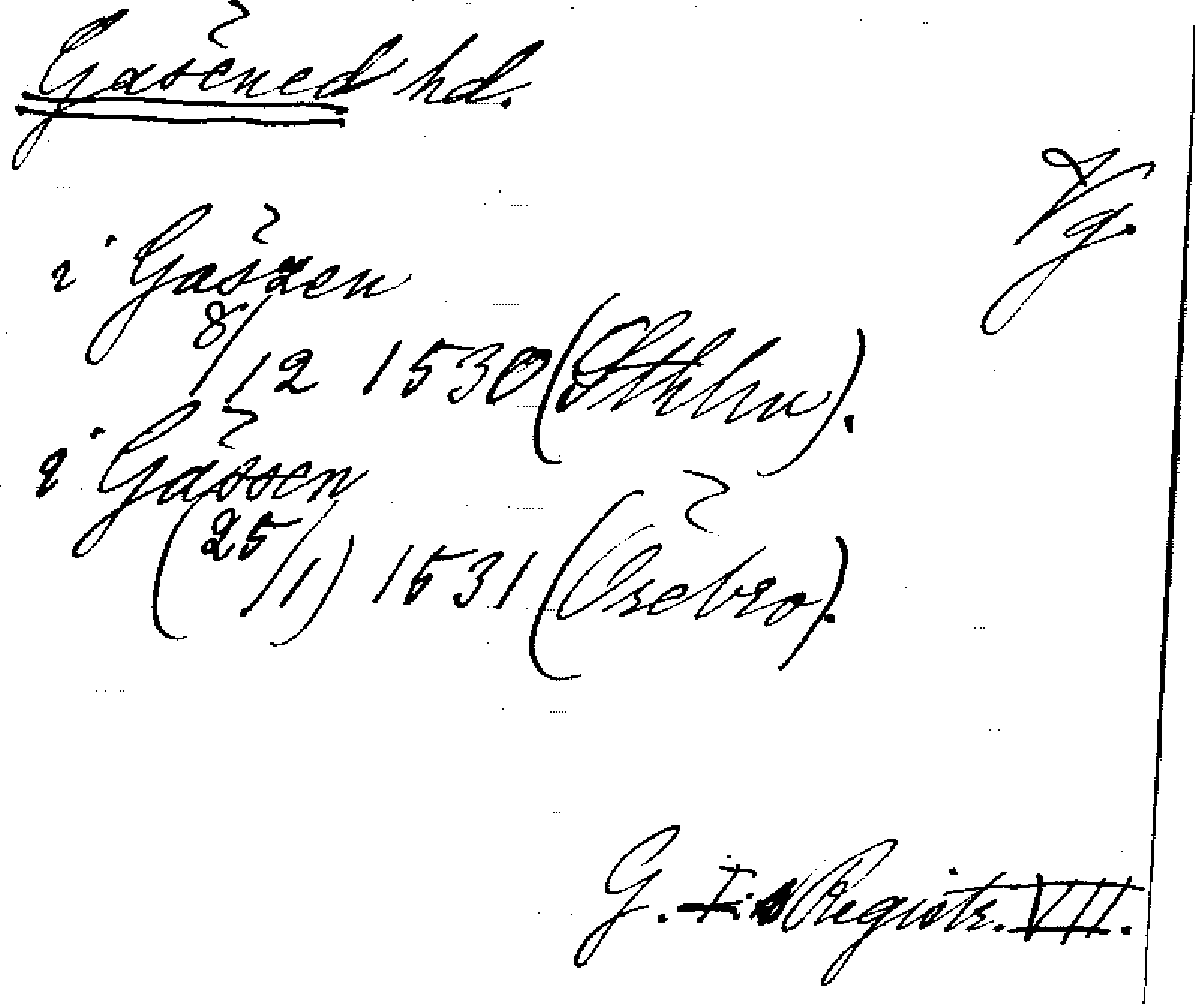 Gäsened hd.
Vg.
i Gäszen
8/12 1530 (Sthlm).
i Gässen
(25/1) 1531 (Örebro).
G. I:s Registr. VII.